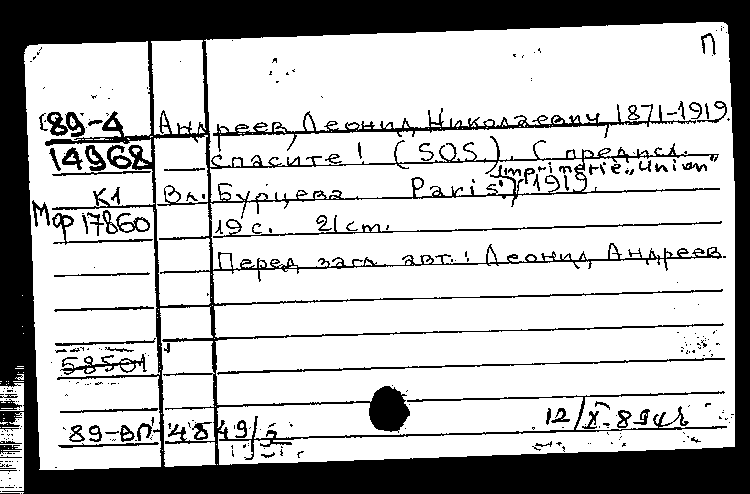 П
89-4 Андреев, Леонид Николаевич, 1871-1919.
14968 Спасите! (S.O.S.). С предисл.
Imprimerie „Union“
К1 Вл. Бурцева. Paris, 1919.
Мф 17860 19 с. 21 cm.
Перед загл. авт.: Леонид Андреев.
58501
89-ВП-4849/5
12/X-89